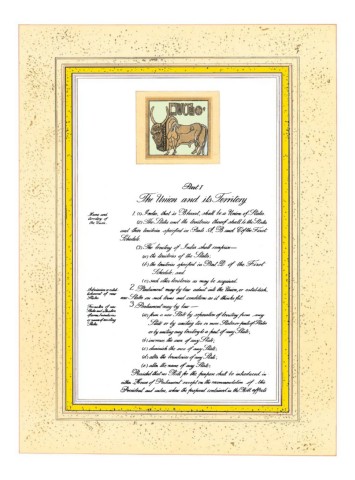 Part I
The Union and its Territory
Name and
territory of
the Union.
1. (1) India, that is Bharat, shall be a Union of States.
(2) The States and the territories thereof shall be the States
and their territories specified in Parts A, B and C of the First
Schedule.
(3) The territory of India shall comprise—
(a) the territories of the States;
(b) the territories specified in Part D of the First
Schedule; and
(c) such other territories as may be acquired.
Admission or establishment of new
States.
2. Parliament may by law admit into the Union, or establish,
new States on such terms and conditions as it thinks fit.
Formation of new
States and alteration
of areas, boundaries
or names of existing
States.
3. Parliament may by law—
(a) form a new State by separation of territory from any
State or by uniting two or more States or parts of States
or by uniting any territory to a part of any State;
(b) increase the area of any State;
(c) diminish the area of any State;
(d) alter the boundaries of any State;
(e) alter the name of any State:
Provided that no Bill for the purpose shall be introduced in
either House of Parliament except on the recommendation of the
President and unless, where the proposal contained in the Bill affects